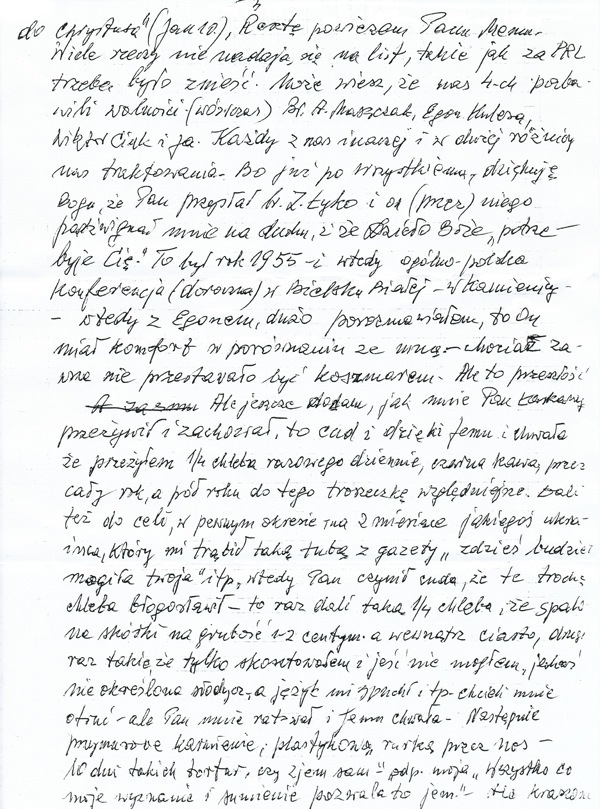 do Chrystusa" (Jan 10.), Resztę powierzam Panu Memu.
Wiele rzeczy nie nadają się na list, takie jak za PRL
trzeba było znieść. Może wiesz, że nas 4-ch pozba-
wili wolności (wówczas) Br. A. Maszczak, Egon Kulesza,
Wiktor Ciuk i ja. Każdy z nas inaczej i w dużej różnicy
nas traktowania. Bo już po wszystkiemu, dziękuję
Bogu, że Pan przysłał br. Z. Łyko i on (przez) niego
podźwignął mnie na duchu, i że Dzieło Boże „potrze-
buje Cię." To był rok 1955 - i wtedy ogólno-polska
Konferencja (doroczna) w Bielsku Białej - w Kamienicy -
- wtedy z Egonem, dużo porozmawiałem, to On
miał komfort w porównaniu ze mną - chociaż za-
wsze nie przestawało być koszmarem. Ale to przeszłość
Ale jeszcze dodam, jak mnie Pan
przeżywił i zachował, to cud i dzięki Jemu i chwała
że przeżyłem 1/4 chleba razowego dziennie, czarna kawa, przez
cały rok, a pół roku do tego troszeczkę względniejsze. Dali
też do celi, w pewnym okresie na 2 miesiące jakiegoś ukra-
ińca, który mi trąbił taką tubą z gazety „zdzieś budziet
mogiła twoja" itp, wtedy Pan czynił cuda, że te trochę
chleba błogosławił - to raz dali taką 1/4 chleba, że spalo
na skórki na grubość 1-2 centym. a wewnątrz ciasto, drugi
raz takie że tylko skosztowałem i jeść nie mogłem, jakaś
nie określona słodycz, a język mi spuchł itp - chcieli mnie
otruć - ale Pan mnie ratował i Jemu chwała - Następnie
przymusowe karmienie, plastykową rurką przez nos -
10 dni takich tortur, czy zjem sam" odp. moja „Wszystko co
moje wyznanie i sumienie pozwala to jem." -